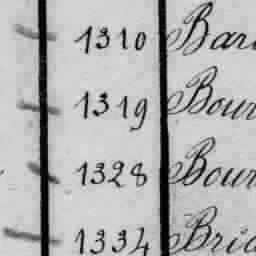 1310 Bar
1319 Bour
1328 Bour
1334 Brid